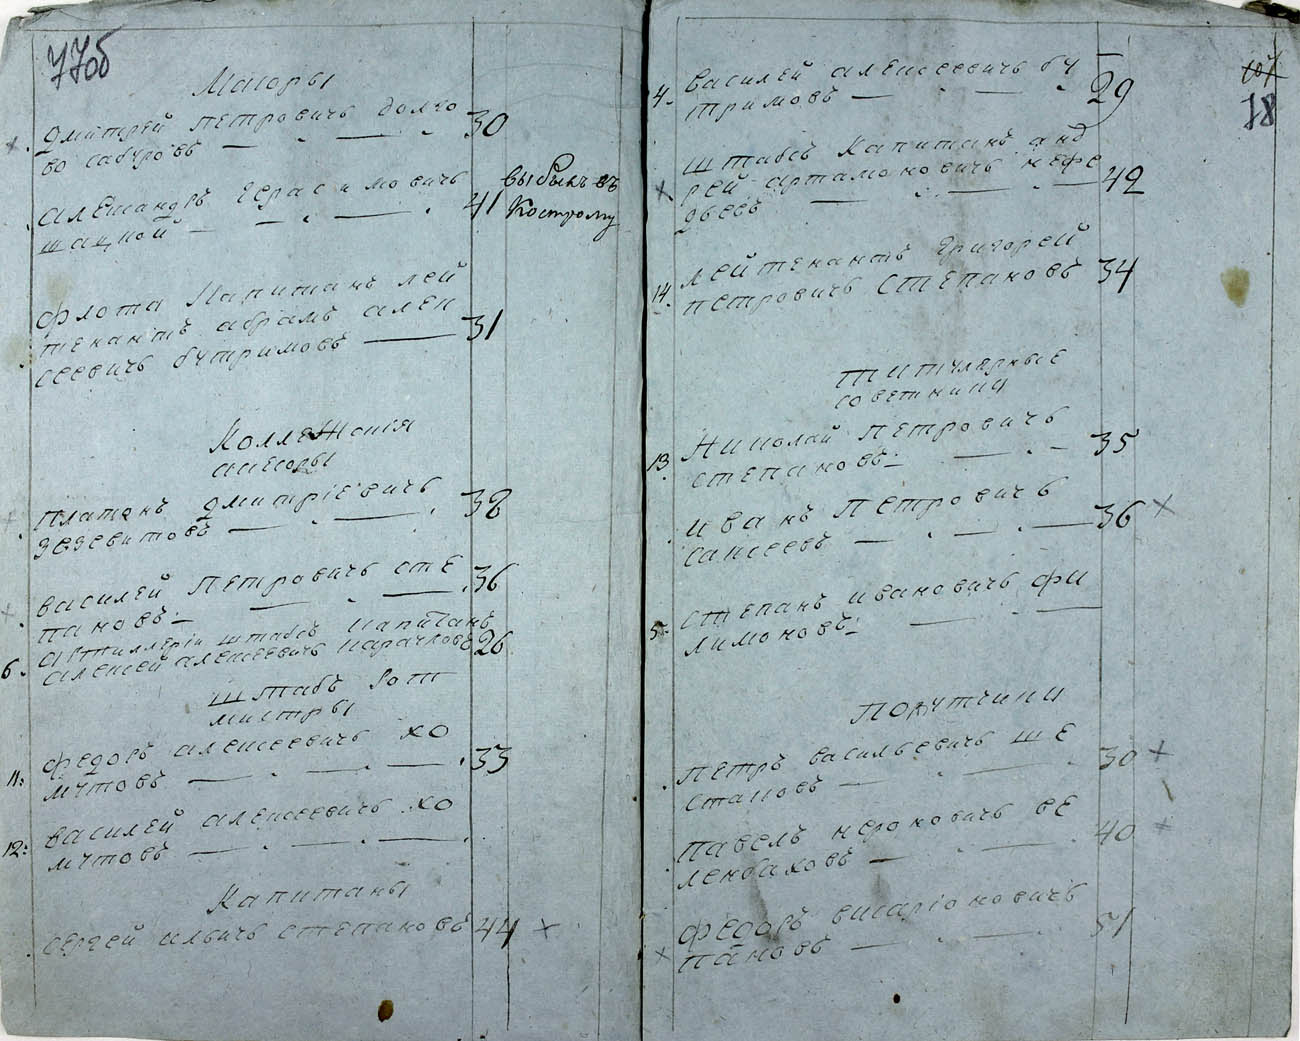 77об
Маіоры
Дмитрей Петровичъ Долго
во сабуровъ — . — . 30
Александръ Герасимовичъ
шацной — . — . 41 выбылъ въ
Кострому
Флота Капитанъ лей
тенантъ абрамъ алек
сеевичъ бутримовъ — 31
Коллежскія
асиесоры
Платонъ Дмитріевичъ
зезевитовъ — . — . 38
Василей Петровичъ сте
пановъ: — . — 36
6. Артиллеріи штабсъ капитанъ
алексей алексеевичъ карачковъ 26
штабъ Рот
мистры
11: Федоръ алексеевичъ хо
мутовъ — . — . 33
12: Василей алексеевичъ хо
мутовъ — . — . — .
Капитаны
Сергей ильичъ степановъ 44
78
4. Василей алексеевичъ бу
тримовъ — . — . 29
штабсъ капитанъ анд
рей артамоновичъ нефе
дьевъ — . — . — 42
14. лейтенантъ Григорей
Петровичъ Степановъ 34
титулярные
советники
13. Николай Петровичъ
степановъ: — . — 35
Иванъ Петровичъ
— . — . — 36
5. Степанъ ивановичъ фи
лимоновъ: — . —
Порутчики
Петръ васильевичъ ше
стаковъ — . — . 30
Павелъ нероновичъ ве
ленбаховъ — . — . 40
Федоръ висаріоновичъ
пановъ — . — . 51